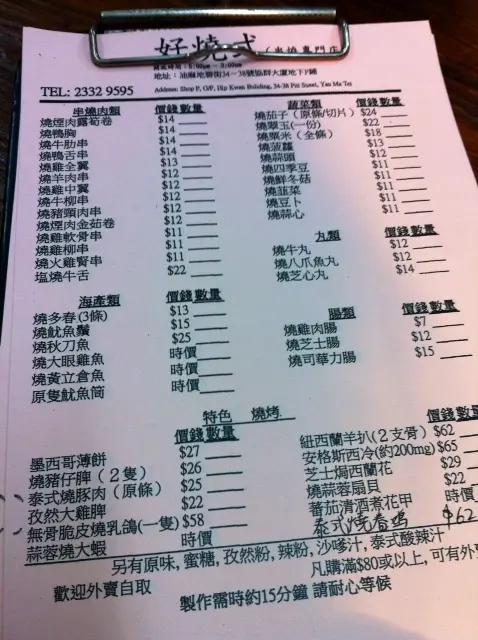 好燒式(串燒專門店
地址：油麻地碧街34－38號協群大廈地下F鋪
TEL: 2332 9595
Address: Shop F, G/F, Hip Kwan Building, 34-38 Pitt Street, Yau Ma Tei
串燒肉類 價錢 數量
燒煙肉露筍卷 $14
燒鴨胸 $14
燒牛肋串 $14
燒鴨舌串 $14
燒雞全翼 $13
燒羊肉串 $12
燒雞中翼 $12
燒牛柳串 $12
燒豬頸肉串 $12
燒煙肉金茹卷 $12
燒雞軟骨串 $11
燒雞柳串 $11
燒火雞腎串 $11
塩燒牛舌 $22
蔬菜類 價錢 數量
燒茄子（原條/切片） $24
燒翠玉(一份) $22
燒粟米（全條） $18
燒菠蘿 $13
燒蒜頭 $12
燒四季豆 $11
燒鮮冬菇 $11
燒韮菜 $11
燒豆卜 $11
燒蒜心 $11
丸類 價錢 數量
燒牛丸 $12
燒八爪魚丸 $12
燒芝心丸 $14
海產類 價錢 數量
燒多春(3條) $13
燒魷魚鬚 $15
燒秋刀魚 $25
燒大眼雞魚 時價
燒黃立倉魚 時價
原隻魷魚筒 時價
腸類 價錢 數量
燒雞肉腸 $7
燒芝士腸 $12
燒司華力腸 $15
特色 燒烤
價錢 數量
墨西哥薄餅 $27
燒豬仔脾（２隻） $26
泰式燒豚肉（原條） $25
孜然大雞脾 $22
無骨脆皮燒乳鴿(一隻) $58
蒜蓉燒大蝦 時價
價錢 數量
紐西蘭羊扒(２支骨) $62
安格斯西冷(約200mg) $65
芝士焗西蘭花 $29
燒蒜蓉扇貝 $22
番茄清酒煮花甲 時價
泰式燒春鷄 $62
另有原味, 蜜糖, 孜然粉, 辣粉, 沙嗲汁, 泰式酸辣汁
凡購滿$80或以上, 可有外
歡迎外賣自取
製作需時約15分鐘 請耐心等候